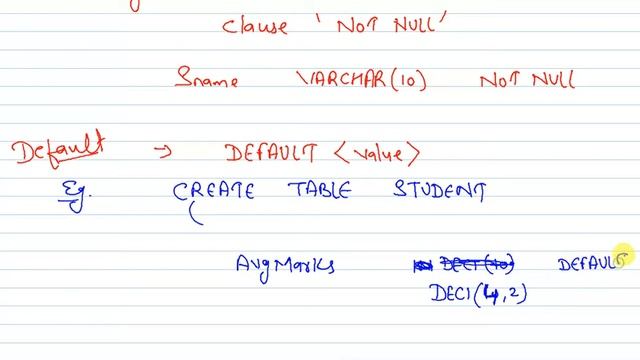 clause 'NOT NULL'
Sname VARCHAR(10) NOT NULL
Default → DEFAULT <value>
Eg. CREATE TABLE STUDENT
(
AvgMarks DECI(10) DEFAULT
DECI(4,2)